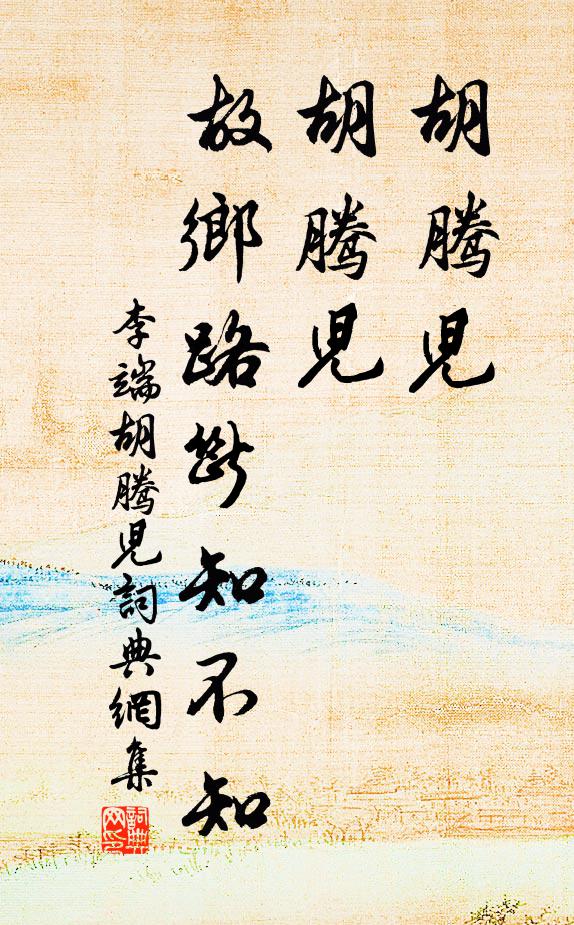 胡騰児
胡騰児
故鄉路断知不知
李端胡騰児詞典網集
詞典网印